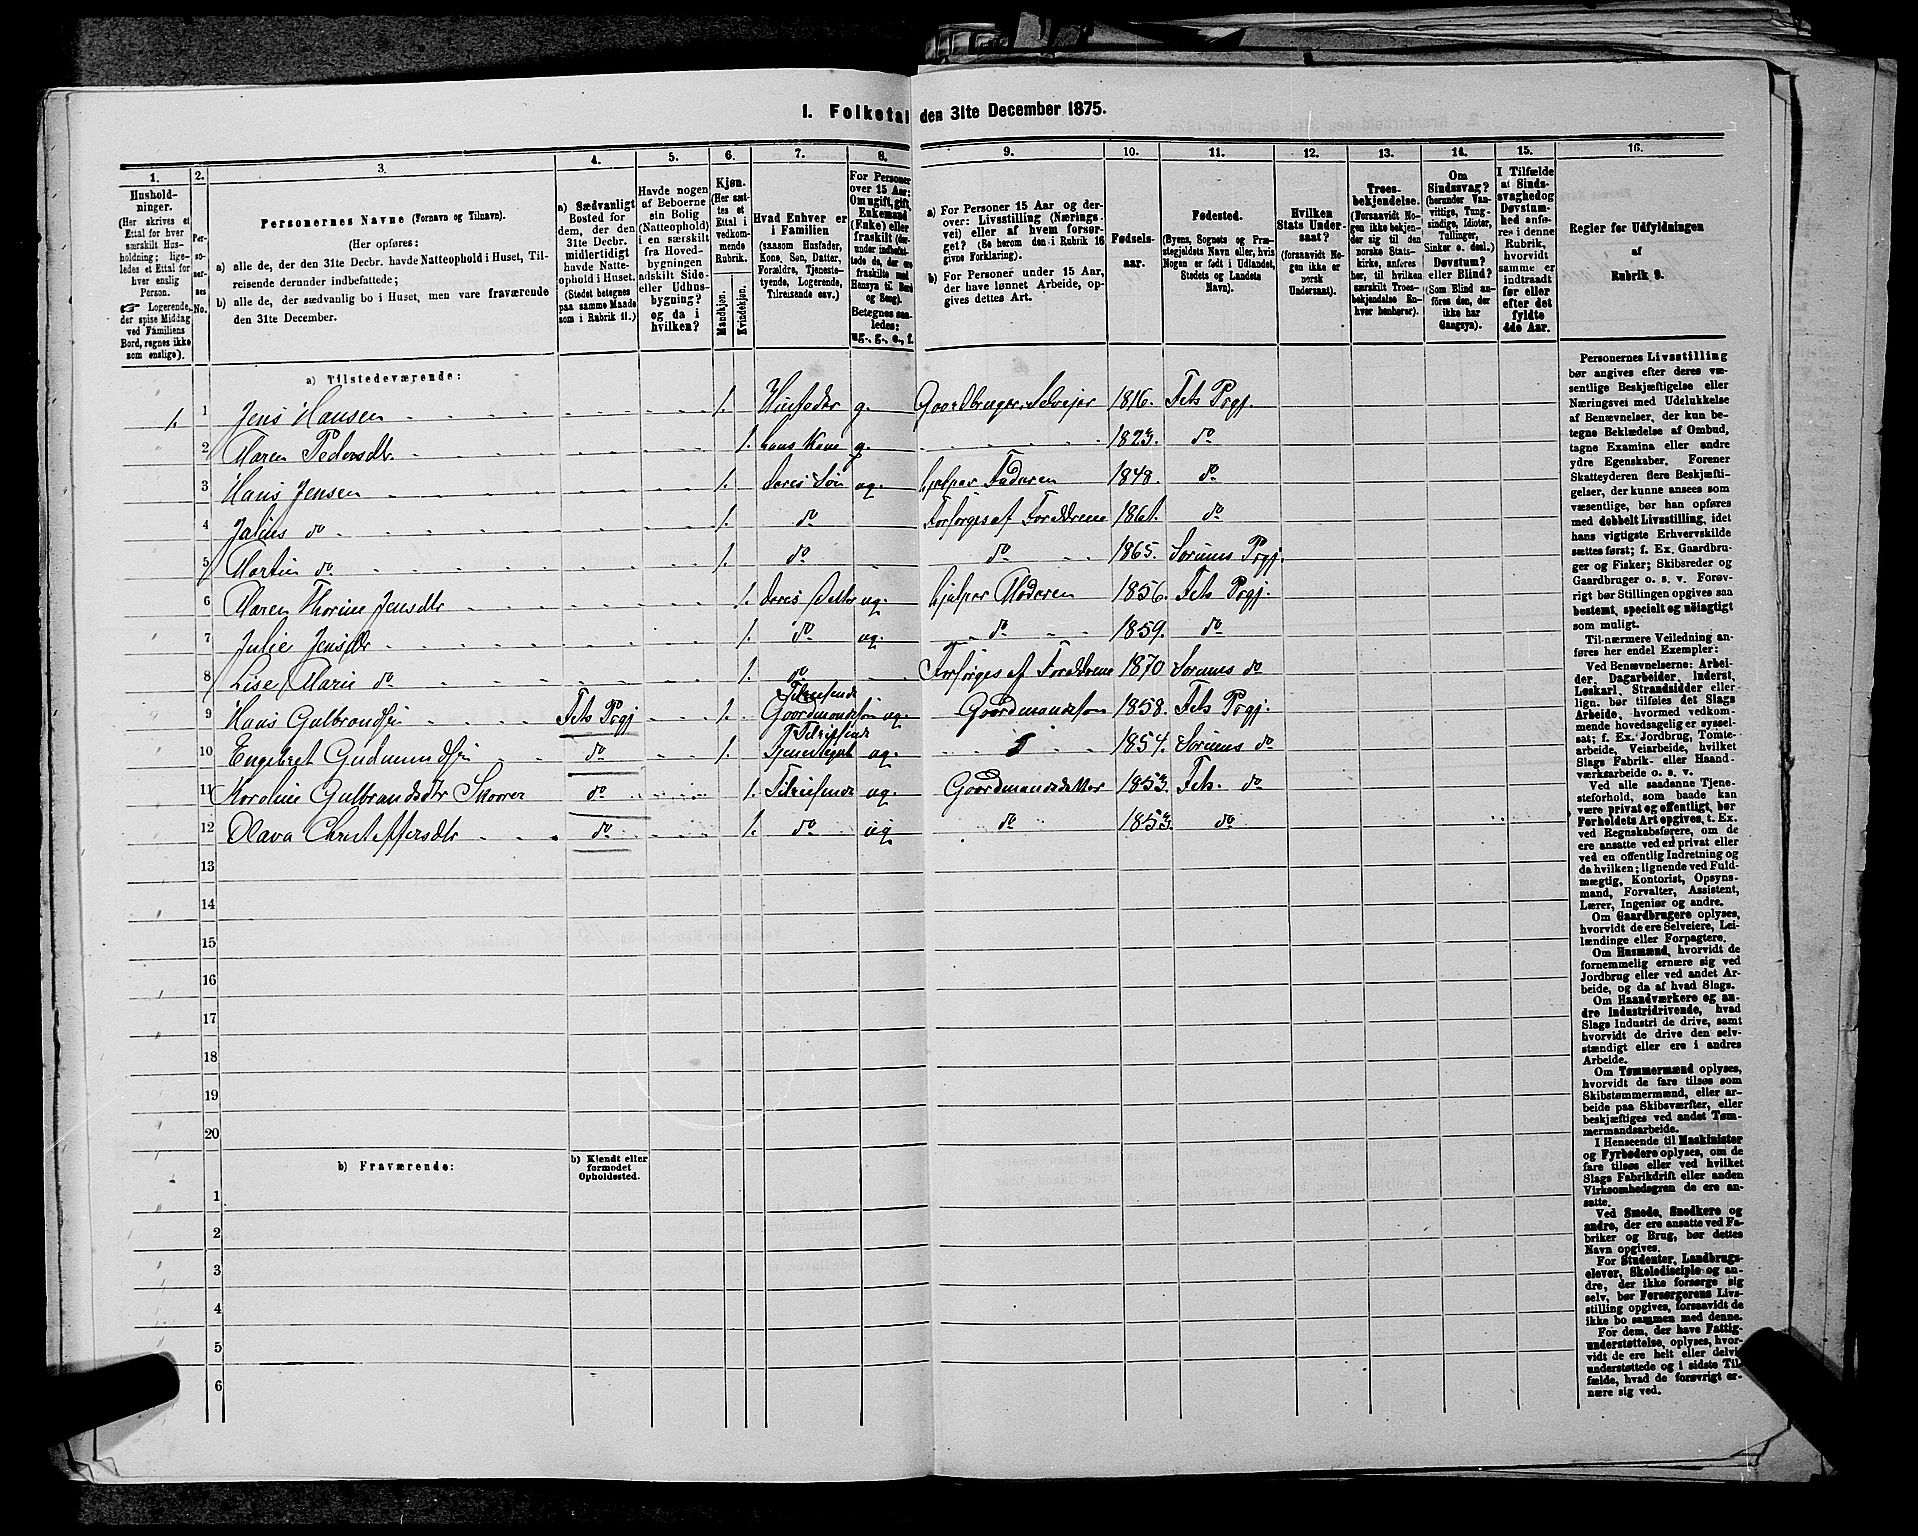 1. Folketal den 31te December 1875.
1. 2. 3. 4. 5. 6. 7. 8. 9. 10. 11. 12. 13. 14. 15. 16.
Hushold-
ninger.
(Her skrives et
Ettal for hver
særskilt Hus-
holdning; lige-
ledes et Ettal for
hver enslig
Person.
☛ Logerende,
der spise Middag
ved Familiens
Bord, regnes ikke
som enslige).
Per-
so-
ner-
nes
No.
Personernes Navne (Fornavn og Tilnavn).
(Her opføres:
a) alle de, der den 31te Decbr. havde Natteophold i Huset, Til-
reisende derunder indbefattede;
b) alle de, der sædvanlig bo i Huset, men vare fraværende
den 31te December.
a) Sædvanligt
Bosted for
dem, der den
31te Decbr.
midlertidigt
havde Natte-
ophold i Huset.
(Stedet betegnes
paa samme Maade
som i Rubrik 11.)
Havde nogen
af Beboerne
sin Bolig
(Natteophold)
i en særskilt
fra Hoved-
bygningen
adskilt Side-
eller Udhus-
bygning?
og da i
hvilken?
Kjøn.
(Her sæt-
tes et
Ettal i
vedkom-
mende
Rubrik.
Mandkjøn.
Kvindekjøn.
Hvad Enhver er
i Familien
(saasom Husfader,
Kone, Søn, Datter,
Forældre, Tjeneste-
tyende, Logerende,
Tilreisende osv.)
For Personer
over 15 Aar:
Om ugift, gift,
Enkemand
(Enke) eller
fraskilt (der-
under indbefat-
tede de, der ere
fraskilte med
Hensyn til Bord
og Seng).
Betegnes saa-
ledes:
ug., g., e., f.
a) For Personer 15 Aar og der-
over: Livsstilling (Nærings-
vei) eller af hvem forsør-
get? (Se herom den i Rubrik 16
givne Forklaring).
b) For Personer under 15 Aar,
der have lønnet Arbeide, op-
gives dettes Art.
Fødsels-
aar.
Fødested.
(Byens, Sognets og Præ-
stegjeldets Navn eller, hvis
Nogen er født i Udlandet,
Stedets og Landets
Navn).
Hvilken
Stats Under-
saat?
(forsaavidt No-
gen ikke er
norsk
Undersaat).
Troes-
bekjendelse.
(Forsaavidt No-
gen ikke bekjen-
der sig til den
norske Stats-
kirke, anføres
her, til hvilken
særskilt Troes-
bekjendelse En-
hver henhører).
Om
Sindssvag?
(herunder Van-
vittige, Tung-
sindige, Idioter,
Tullinger,
Sinker o. desl.)
Døvstum?
eller Blind?
(Som Blind an-
føres den, der
ikke har
Gangsyn).
I Tilfælde
af Sinds-
svaghed og
Døvstum-
hed anfø-
res i denne
Rubrik,
hvorvidt
samme er
indtraadt
før eller
efter det
fyldte
4de Aar.
Regler for Udfyldningen
af
Rubrik 9.
a) Tilstedeværende:
1. 1 Jens Hansen 1. Husfader g. Gaardbruger, Selveier 1816. Fets Prgj.
2 Maren Pedersdtr 1. hans Kone g. 1823. do
3 Hans Jensen 1. deres Søn ug. hjelper Faderen 1848. do
4 Julius do 1. do Forsørges af Forældrene 1861. do
5 Martin do 1. do do 1865. Sørums Prgj.
6 Maren Thorine Jensdtr 1. deres Datter ug. hjelper Moderen 1856. Fets Prgj.
7 Julie Jensdtr 1. do ug. do 1859. do
8 Lise Marie do 1. do Forsørges af Forældrene 1870 Sørums do
9 Hans Gulbrandsen Fets Prgj 1. Tilreisende Gaardmandssøn ug. Gaardmandssøn 1858. Fets Prgj.
10 Engebret Gudmundsen do 1. Tilreisende ug. 1854. Sørums do
11 Karoline Gulbrandsdtr do 1. Tilreisende ug. Gaardmandsdatter 1853. Fets. do
12 Olava Christoffersdtr do 1. do ug do 1853. do
13
14
15
16
17
18
19
20
b) Fraværende:
b) Kjendt eller
formodet
Opholdssted.
1
2
3
4
5
6
Personernes Livsstilling
bør angives efter deres væ-
sentlige Beskjæftigelse eller
Næringsvei med Udelukkelse
af Benævnelser, der kun be-
tegne Beklædelse af Ombud,
tagne Examina eller andre
ydre Egenskaber. Forener
Skatteyderen flere Beskjæfti-
gelser, der kunne ansees som
væsentlige, bør han opføres
med dobbelt Livsstilling, idet
hans vigtigste Erhvervskilde
sættes først; f. Ex. Gaardbru-
ger og Fisker; Skibsreder og
Gaardbruger o. s. v. Forøv-
rigt bør Stillingen opgives saa
bestemt, specielt og nöiagtigt
som muligt.
Til nærmere Veiledning an-
føres her endel Exempler:
Ved Benævnelserne: Arbei-
der, Dagarbeider, Inderst,
Løskarl, Strandsidder eller
lign. bør tilføies det Slags
Arbeide, hvormed vedkom-
mende hovedsagelig er syssel-
sat; f. Ex. Jordbrug, Tomte-
arbeide, Veiarbeide, hvilket
Slags Fabrik- eller Haand-
værksarbeide o. s. v.
Ved alle saadanne Tjene-
steforhold, som baade kan
være privat og offentligt, bør
Forholdets Art opgives, t. Ex.
ved Regnskabsførere, om de
ere ansatte ved en privat eller
ved en offentlig Indretning og
da hvilken; lignende ved Fuld-
mægtig, Kontorist, Opsyns-
mand, Forvalter, Assistent,
Lærer, Ingeniør og andre.
Om Gaardbrugere oplyses,
hvorvidt de ere Selveiere, Lei-
lændinge eller Forpagtere.
Om Husmænd, hvorvidt de
fornemmelig ernære sig ved
Jordbrug eller ved andet Ar-
beide, og da af hvad Slags.
Om Haandværkere og an-
dre Industridrivende, hvad
Slags Industri de drive, samt
hvorvidt de drive den selv-
stændigt eller ere i andres
Arbeide.
Om Tømmermænd oplyses,
hvorvidt de fare tilsøs som
Skibstømmermænd, eller ar-
beide paa Skibsværfter, eller
beskjæftiges ved andet Tøm-
mermandsarbeide.
I Henseende til Maskinister
og Fyrbødere oplyses, om de
fare tilsøs eller ved hvilket
Slags Fabrikdrift eller anden
Virksomhedsgren de ere an-
satte.
Ved Smede, Snedkere og
andre, der ere ansatte ved Fa-
briker og Brug, bør dettes
Navn opgives.
For Studenter, Landbrugs-
elever, Skoledisciple og an-
dre, der ikke forsørge sig
selv, bør Forsørgerens Livs-
stilling opgives, forsaavidt de
ikke bo sammen med denne.
For dem, der have Fattig-
understøttelse, oplyses, hvor-
vidt de ere helt eller delvis
understøttede og i sidste Til-
fælde, hvad de forøvrigt er-
nære sig ved.